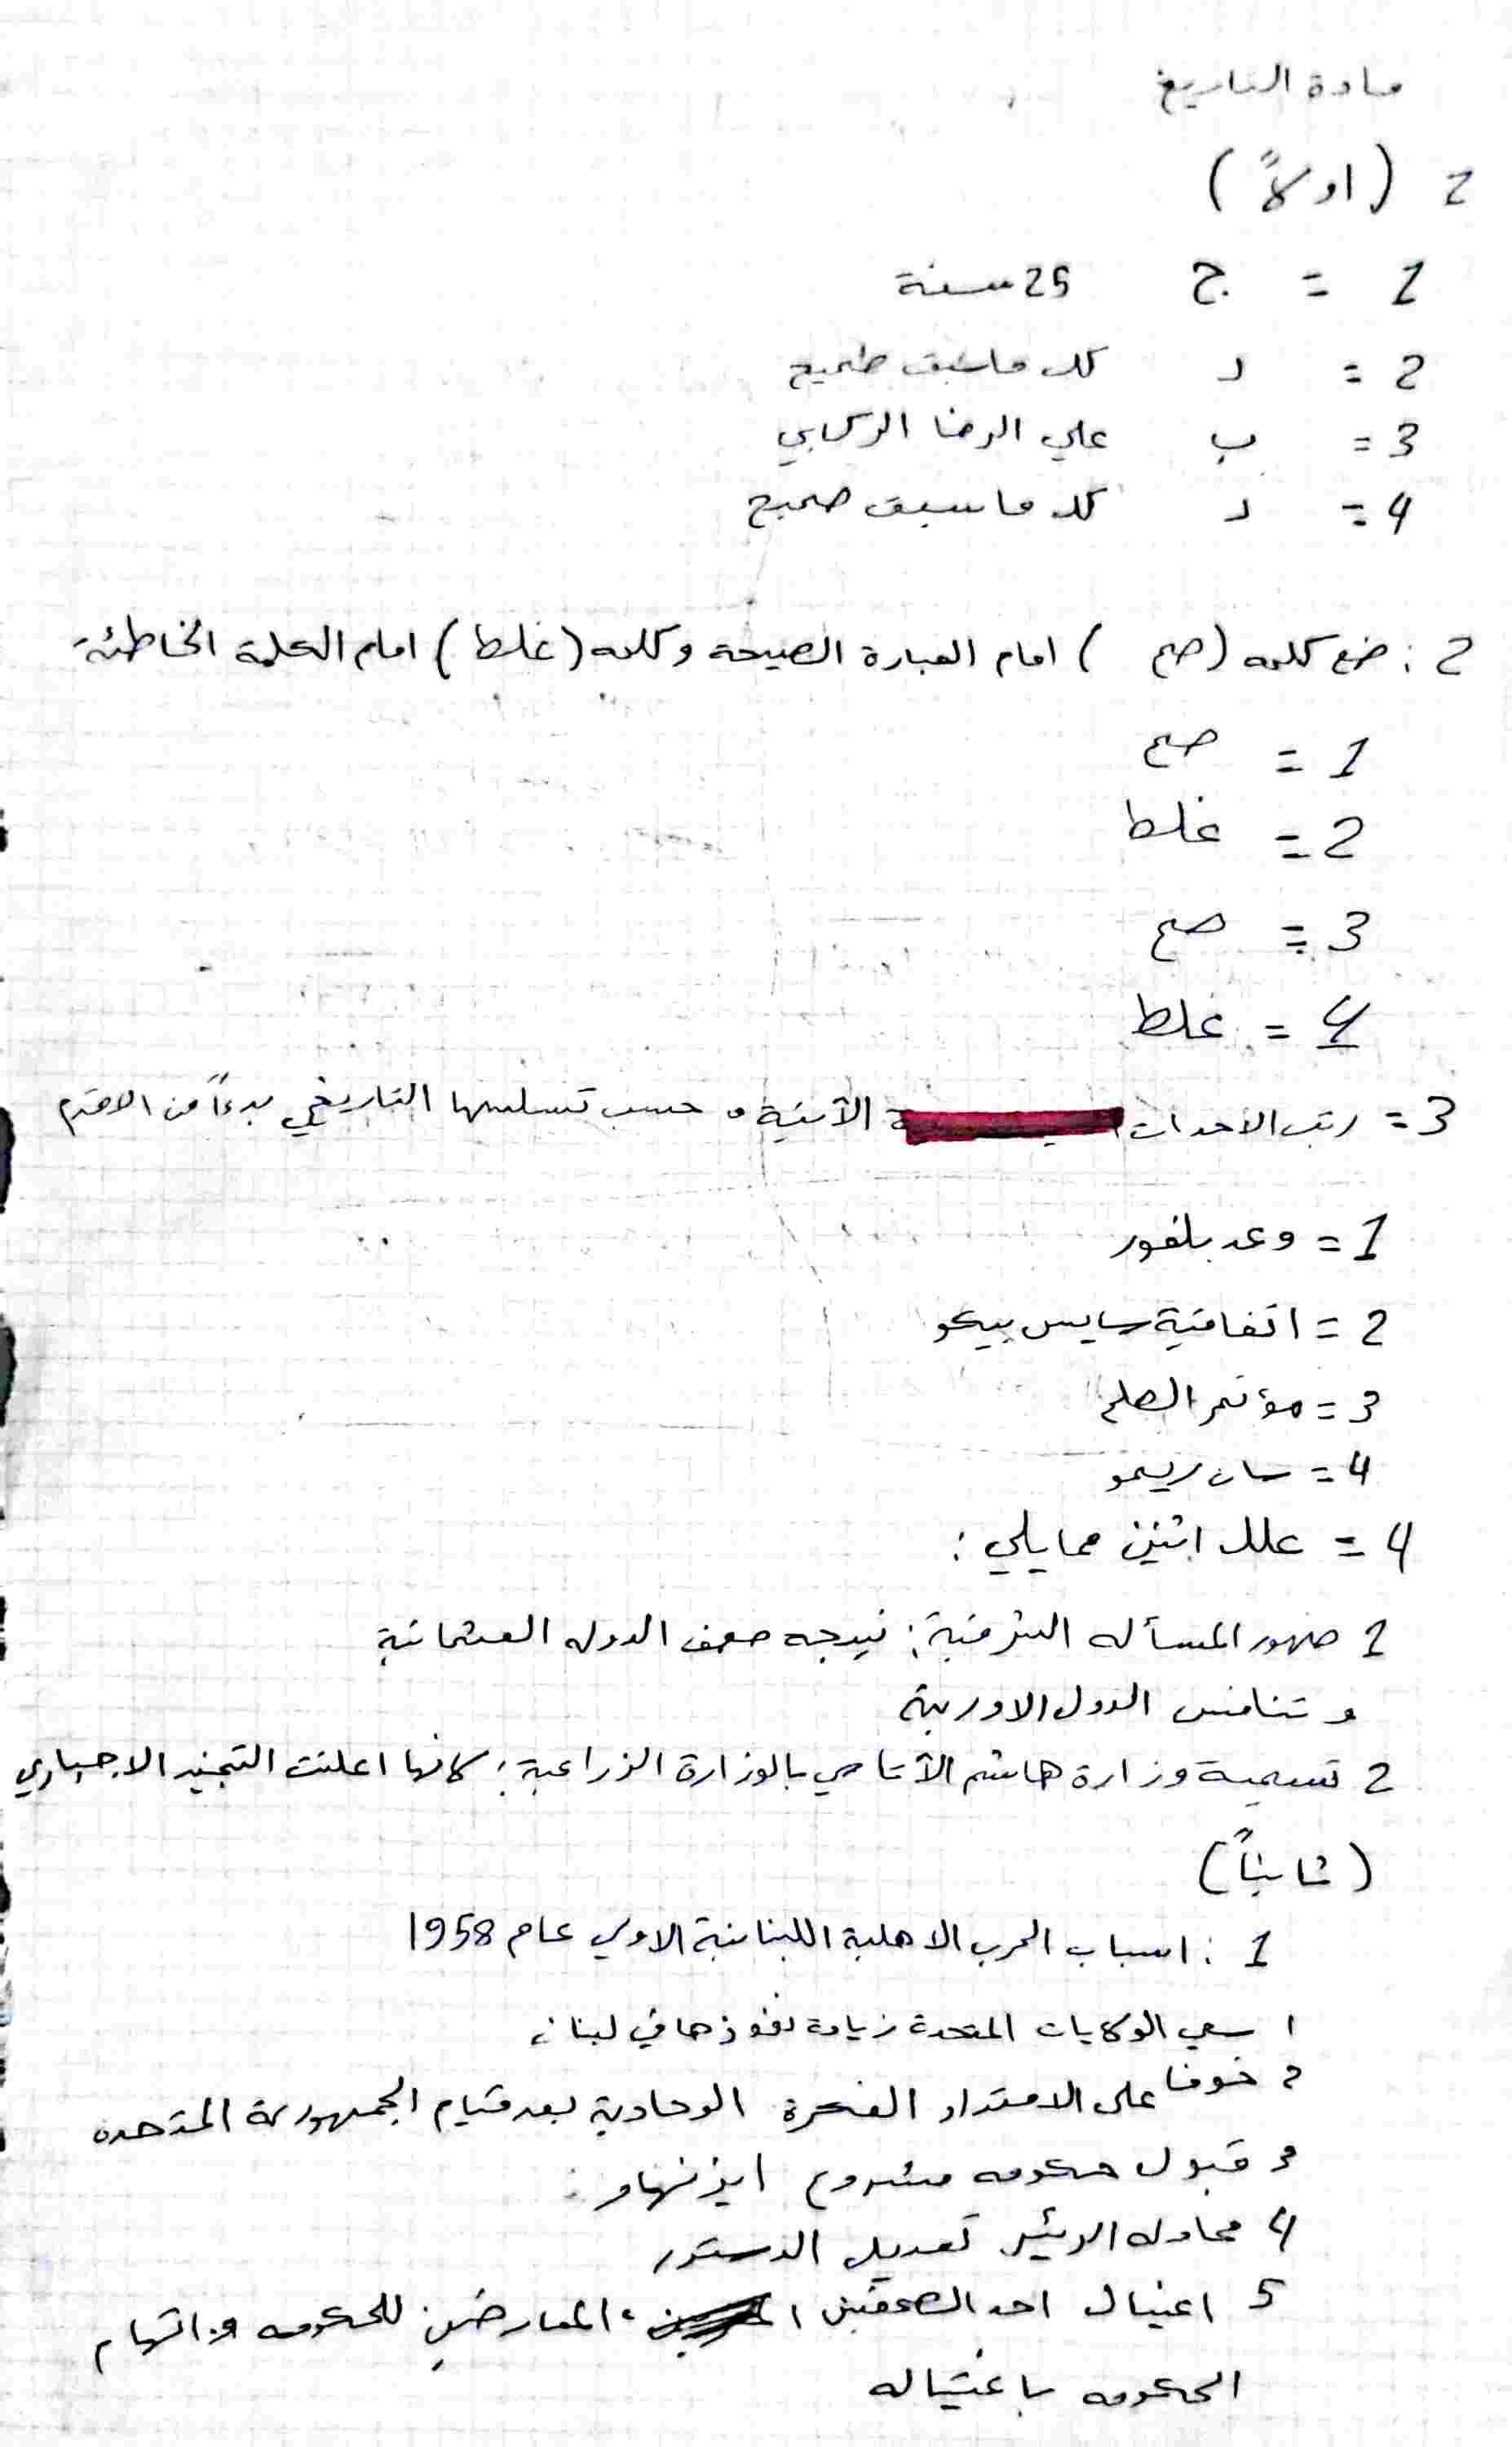 مادة التاريخ
2 (اولاً)
1 = ج 25 سنة
2 = د كل ماسبق صحيح
3 = ب علي الرضا الركابي
4 = د كل ماسبق صحيح
2 : ضع كلمه (صح ) امام العبارة الصيحة وكلمه (غلط) امام الكلمة الخاطئة
1 = صح
2 = غلط
3 = صح
4 = غلط
3 = رتب الاحداث الآتية حسب تسلسها التاريخي بدءاً من الاقدم
1 = وعد بلفور
2 = اتفاقية سايس بيكو
3 = مؤتمر الصلح
4 = سان ريمو
4 = علل اثنين مما يلي :
1 ضهور المسأله الشرقية : نيجه ضعف الدوله العثمانية
و تنافس الدول الاوربية
2 تسمية وزارة هاشم الأتاسي بالوزارة الزراعية : لانها اعلنت التجنيد الاجباري
(ثانياً)
1 : اسباب الحرب الاهلية اللبنانية الاولى عام 1958
1 سعي الولايات المتحدة زيادة نفوذها في لبنان
2 خوفا على الامتداد الفكرة الوحادية بعد قيام الجمهورية المتحده
3 قبول حكومه مشروع ايزنهاور
4 محاوله الرئيس تعديل الدستور
5 اغيال احد الصحفين المعارضين للحكومه واتهام
الحكومه باغتياله